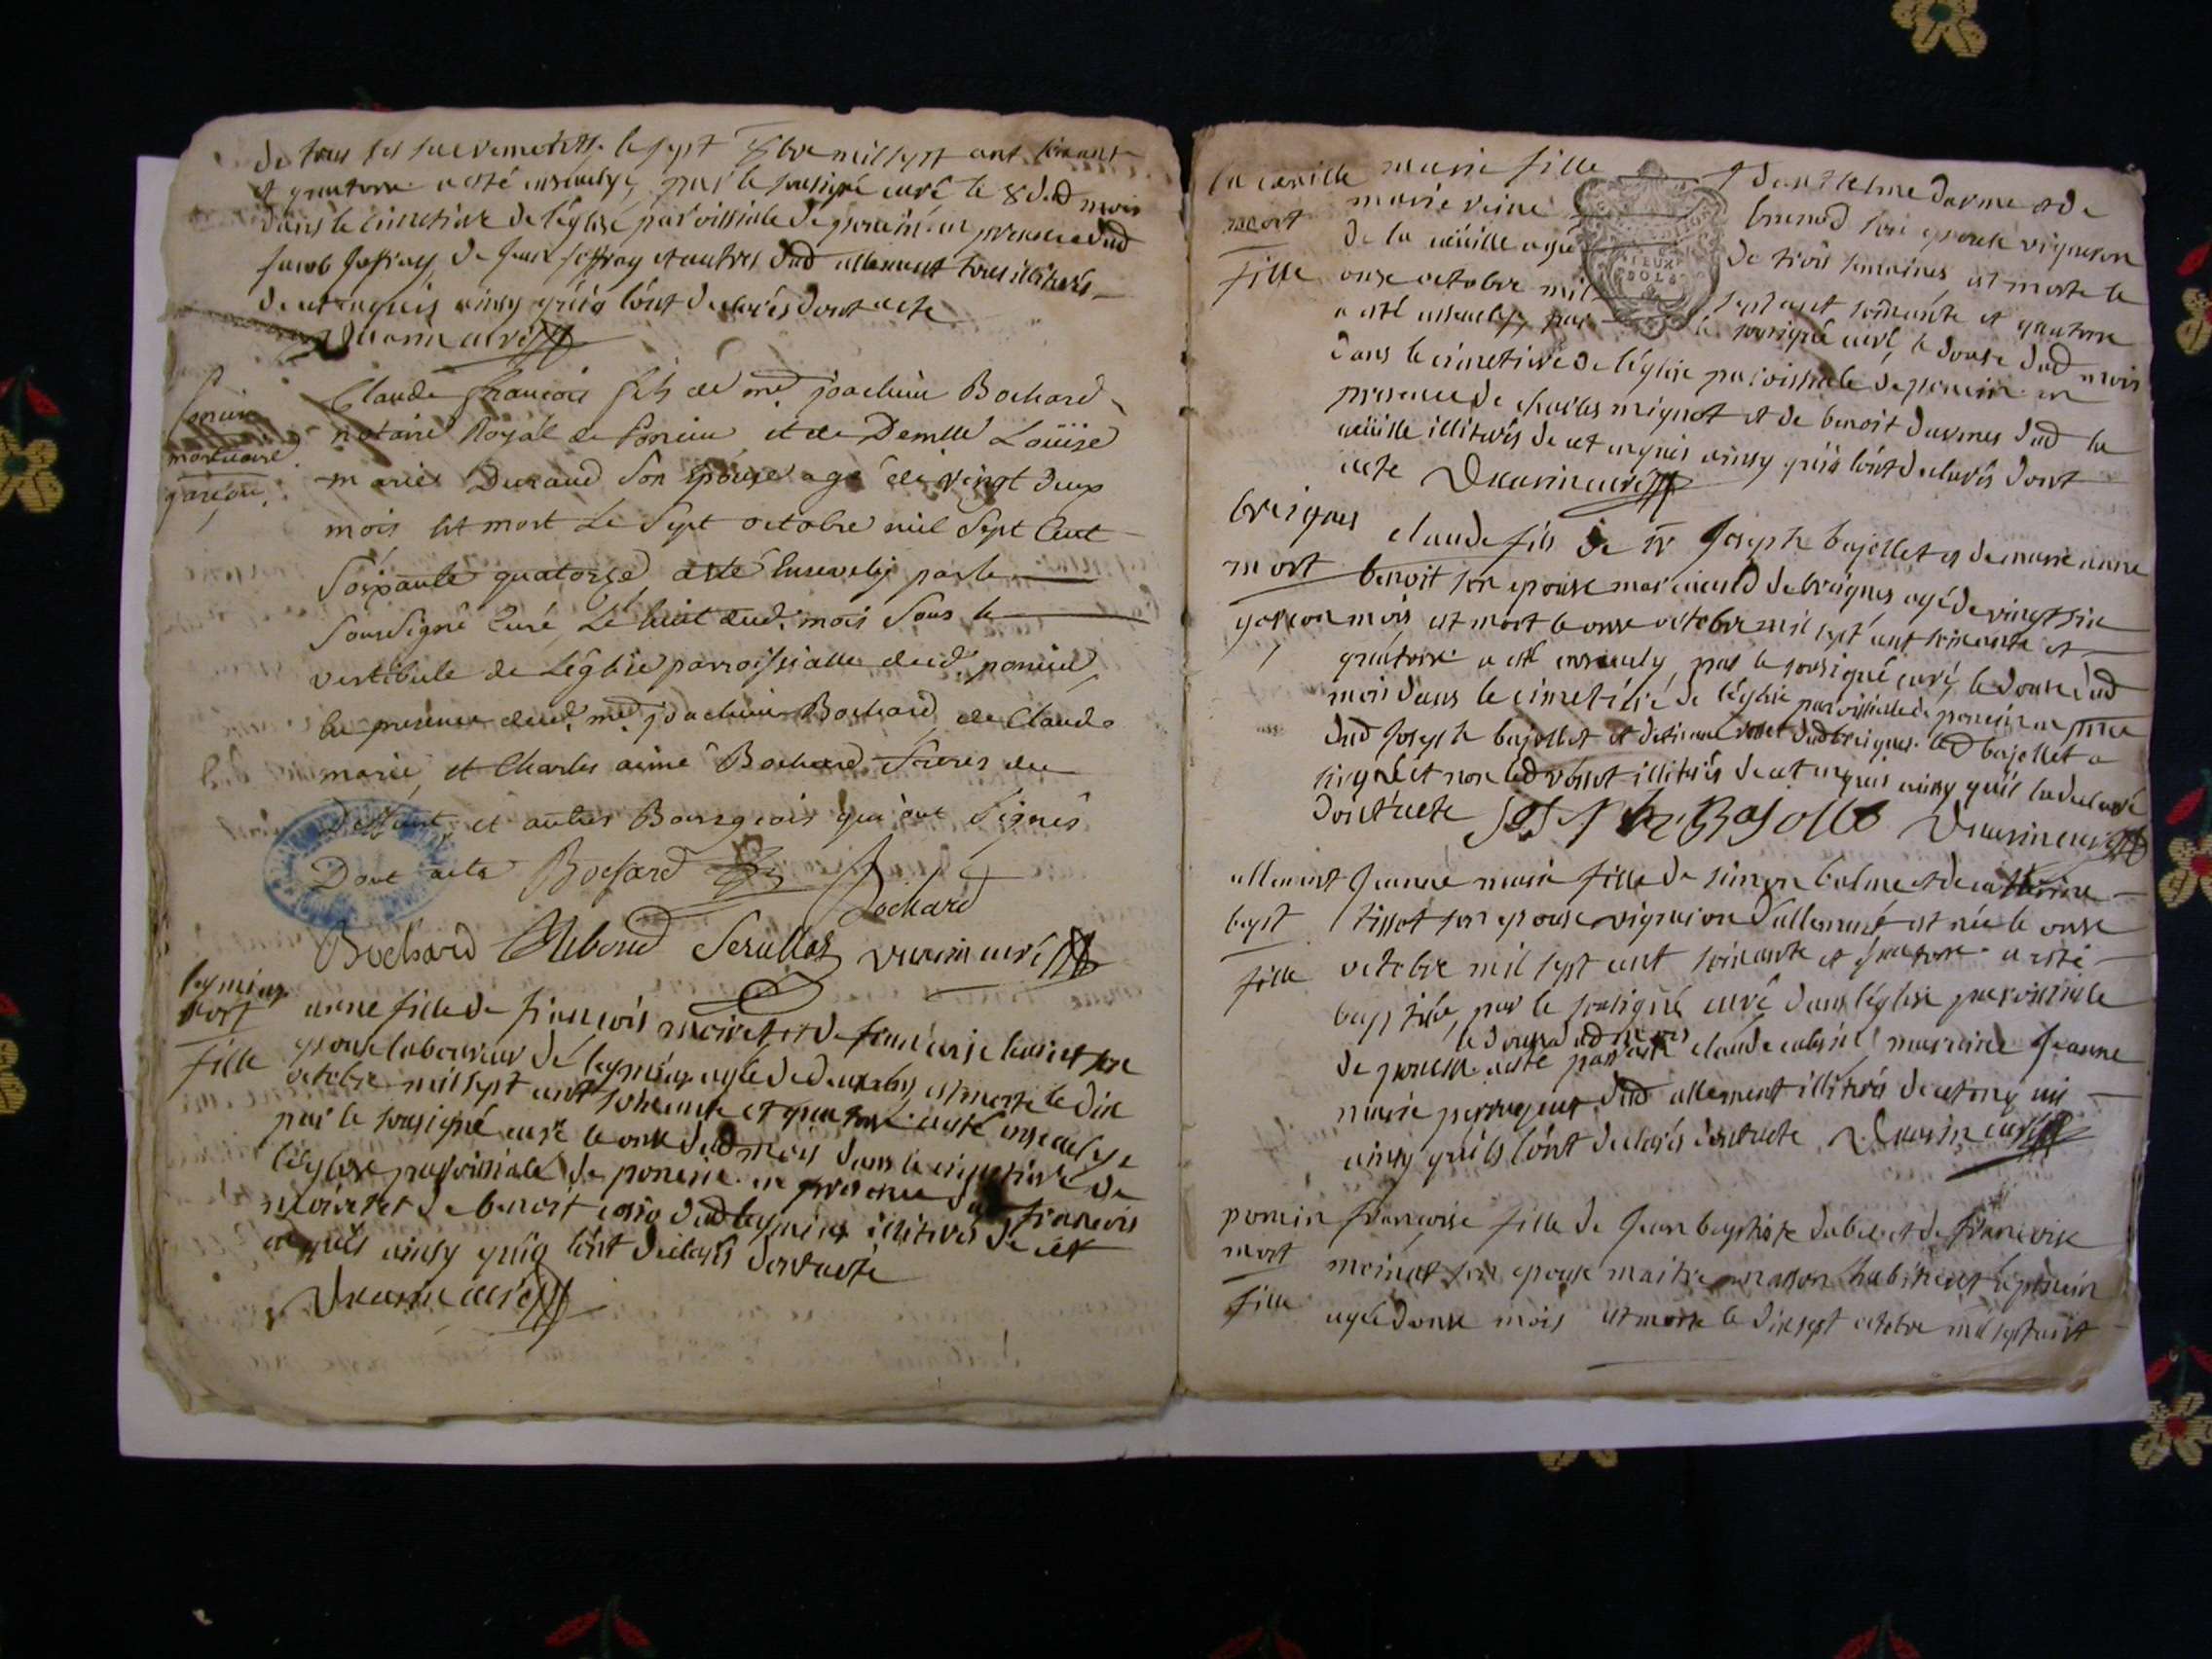 de tous les sacremens le sept 8bre mil sept cent soixante
et quatorze a esté ensevely par le soussigné curé le 8 dud mois
dans le cimetiere de l'église paroissiale de poncin en presence dud
jacob joffray de jean joffray et autres dud allement tous illiterés
de ce enquis ainsy qu'ils l'ont declarés dont acte
curé
Poncin
mortuaire
garçon
Claude françois fils de me joachim Bochard
notaire Royal de Poncin et de Demlle Loüise
marie Durand son épouse agé de vingt deux
mois est mort Le Sept octobre mil Sept Cent
Soixante quatorze a esté Ensevely par le
Soussigné Curé Le huit dud. mois Sous le
vestibule de L'église parroissialle dud. poncin
En presence dud. me joachim Bochard de Claude
marie et Charles aimé Bochard freres du
Deffunt et autres Bourgeois qui ont Signés
Dont acte Bochard Bochard
Bochard curé
mort
fille
anne fille de françois moiret et de françoise son
epouse laboureur de agée de est morte le dix
octobre mil sept cent soixante et quatorze a esté ensevelye
par le soussigné curé le onze dud mois dans le cimetiere de
l'église paroissiale de poncin en presence dud françois
moiret et de benoit dud illiterés de cet
enquis ainsy qu'ils l'ont declarés dont acte
curé
la cueille
mort
fille
marie fille d'anthelme darme et de
marie reine brunod son epouse vigneron
de la cueille agée de trois semaines est morte le
onze octobre mil sept cent soixante et quatorze
a esté ensevelye par le soussigné curé le douze dud mois
dans le cimetiere de l'église paroissiale de poncin en
presence de charles mignot et de benoit darmes dud la
cueille illiterés de cet enquis ainsy qu'ils l'ont declarés dont
acte curé
breignes
mort
garçon
claude fils de sr Joseph bajollet et de marie anne
benoit son epouse marechald de breignes agé de vingt six
mois est mort le onze octobre mil sept cent soixante et
quatorze a esté ensevely par le soussigné curé le douze dud
mois dans le cimetiere de l'église paroissiale de poncin en pnce
dud Joseph bajollet et de dud breignes led bajollet a
signé et non led illiterés de cet enquis ainsy qu'il l'a declaré
dont acte curé
allement
bapt
fille
Jeanne marie fille de simon balme et de catherine
tissot son epouse vigneron d'allement est née le onze
octobre mil sept cent soixante et quatorze a esté
baptisée par le soussigné curé dans l'église paroissiale
le douze dud mois
de poncin a esté parrain claude marraine Jeanne
marie dud allement illiterés de cet enquis
ainsy qu'ils l'ont declarés dont acte curé
poncin
mort
fille
françoise fille de Jean baptiste et de françoise
moinat son epouse maitre masson habitant à poncin
agée d'onze mois est morte le dix sept octobre mil sept cent